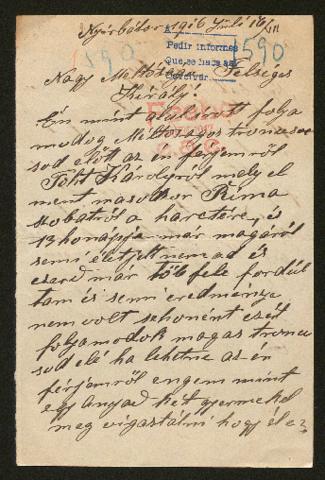 Nyírbátor 1916 Juli 16/III
Pedir informes
Que se haga
Archivar
1590
590
Nagy Méltoságu Felséges
Király!
Én mint alulirott folya
modog Méltoságos tronusa
sod elött az én férjemröl
Tóht Károlyrol mely el
ment másodszor Rima
szobatról a harctére, és
13 honápja már magáról
semi életjelt nem ad és
ezerd már több fele fordúl
tam és semi eredménye
nem volt sehonént ezért
folyamodok magas tronu
sod elé ha lehetne az én
férjemröl engem mint
egy anyad két gyermekel
meg vigasztalni hogy él e